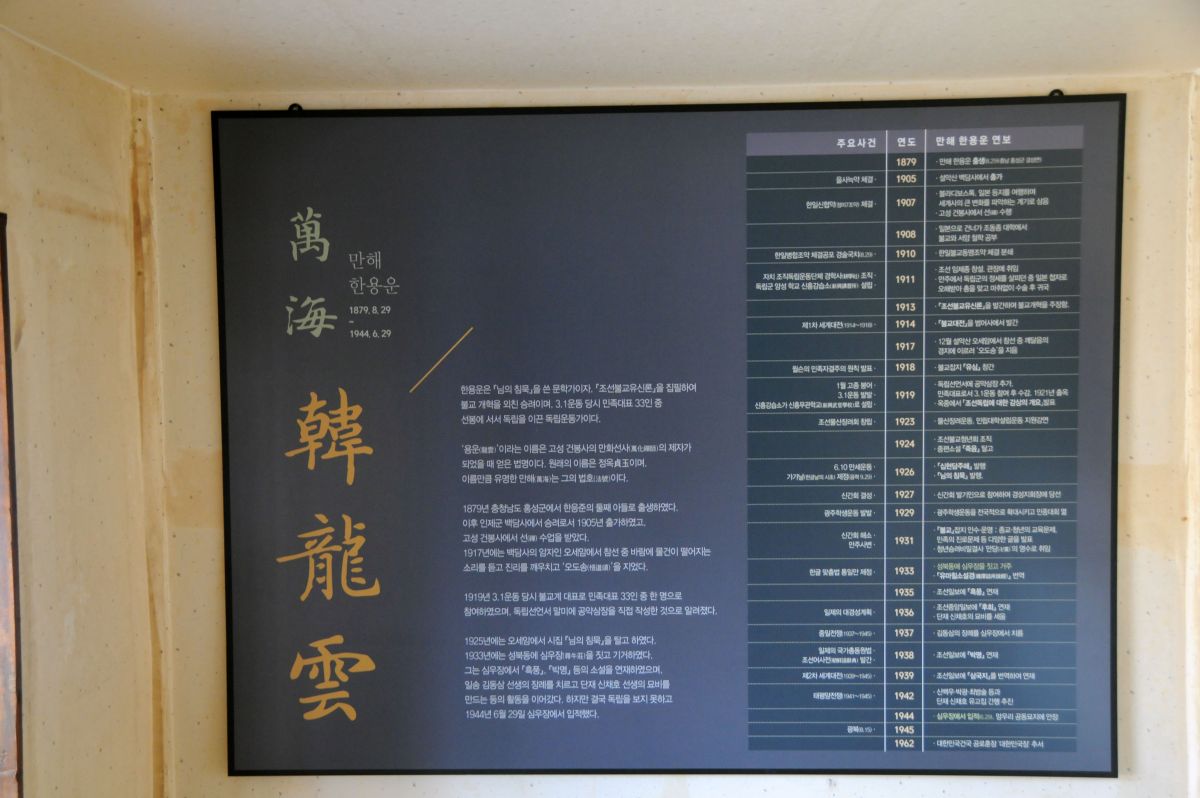 萬
海
만해
한용운
1879. 8. 29
-
1944. 6. 29
韓
龍
雲
한용운은 『님의 침묵』을 쓴 문학가이자, 『조선불교유신론』을 집필하여
불교 개혁을 외친 승려이며, 3.1운동 당시 민족대표 33인 중
선봉에 서서 독립을 이끈 독립운동가이다.
'용운(龍雲)'이라는 이름은 고성 건봉사의 만화선사(萬化禪師)의 제자가
되었을 때 얻은 법명이다. 원래의 이름은 정옥貞玉이며,
이름만큼 유명한 만해(萬海)는 그의 법호(法號)이다.
1879년 충청남도 홍성군에서 한응준의 둘째 아들로 출생하였다.
이후 인제군 백담사에서 승려로서 1905년 출가하였고,
고성 건봉사에서 선(禪) 수업을 받았다.
1917년에는 백담사의 암자인 오세암에서 참선 중 바람에 물건이 떨어지는
소리를 듣고 진리를 깨우치고 '오도송(悟道頌)'을 지었다.
1919년 3.1운동 당시 불교계 대표로 민족대표 33인 중 한 명으로
참여하였으며, 독립선언서 말미에 공약삼장을 직접 작성한 것으로 알려졌다.
1925년에는 오세암에서 시집 『님의 침묵』을 탈고 하였다.
1933년에는 성북동에 심우장(尋牛莊)을 짓고 기거하였다.
그는 심우장에서 『흑풍』, 『박명』 등의 소설을 연재하였으며,
일송 김동삼 선생의 장례를 치르고 단재 신채호 선생의 묘비를
만드는 등의 활동을 이어갔다. 하지만 결국 독립을 보지 못하고
1944년 6월 29일 심우장에서 입적했다.
주요사건 연도 만해 한용운 연보
1879 · 만해 한용운 출생(8.29 충남 홍성군 결성면)
을사늑약 체결 · 1905 · 설악산 백담사에서 출가
한일신협약(정미7조약) 체결 · 1907 · 블라디보스톡, 일본 등지를 여행하며
세계사의 큰 변화를 파악하는 계기로 삼음
· 고성 건봉사에서 선(禪) 수행
1908 · 일본으로 건너가 조동종 대학에서
불교와 서양 철학 공부
한일병합조약 체결공포 경술국치(8.29) · 1910 · 한일불교동맹조약 체결 분쇄
자치 조직독립운동단체 경학사(耕學社) 조직 ·
독립군 양성 학교 신흥강습소(新興講習所) 설립 · 1911 · 조선 임제종 창설, 관장에 취임
· 만주에서 독립군의 정세를 살피던 중 일본 첩자로
오해받아 총을 맞고 마취없이 수술 후 귀국
1913 · 『조선불교유신론』을 발간하여 불교개혁을 주장함.
제1차 세계대전(1914~1918) · 1914 · 『불교대전』을 범어사에서 발간
1917 · 12월 설악산 오세암에서 참선 중 깨달음의
경지에 이르러 '오도송'을 지음
윌슨의 민족자결주의 원칙 발표 · 1918 · 불교잡지 『유심』 창간
1월 고종 붕어 ·
3.1운동 발발 ·
신흥강습소가 신흥무관학교(新興武官學校)로 설립 · 1919 · 독립선언서에 공약삼장 추가.
민족대표로서 3.1운동 참여 후 수감, 1921년 출옥
· 옥중에서 「조선독립에 대한 감상의 개요」발표
조선물산장려회 창립 · 1923 · 물산장려운동, 민립대학설립운동 지원강연
1924 · 조선불교청년회 조직
· 중편소설 『죽음』 탈고
6.10 만세운동 ·
가갸날(한글날의 시초) 제정(음력 9.29) · 1926 · 『십현담주해』 발행
· 『님의 침묵』 발행.
신간회 결성 · 1927 · 신간회 발기인으로 참여하여 경성지회장에 당선
광주학생운동 발발 · 1929 · 광주학생운동을 전국적으로 확대시키고 민중대회 엶
신간회 해소 ·
만주사변 · 1931 · 『불교』잡지 인수·운영 : 종교·청년의 교육문제,
민족의 진로문제 등 다양한 글을 발표
· 청년승려비밀결사 '만당(卍黨)'의 영수로 취임
한글 맞춤법 통일안 제정 · 1933 · 성북동에 심우장을 짓고 거주
· 『유마힐소설경』 번역
1935 · 조선일보에 『흑풍』 연재
일제의 대경성계획 · 1936 · 조선중앙일보에 『후회』 연재
· 단재 신채호의 묘비를 세움
중일전쟁(1937~1945) · 1937 · 김동삼의 장례를 심우장에서 치름
일제의 국가총동원법 ·
조선어사전(朝鮮語辭典) 발간 · 1938 · 조선일보에 『박명』 연재
제2차 세계대전(1939~1945) · 1939 · 조선일보에 『삼국지』를 번역하여 연재
태평양전쟁(1941~1945) · 1942 · 신백우·박광·최범술 등과
단재 신채호 유고집 간행 추진
1944 · 심우장에서 입적(6.29), 망우리 공동묘지에 안장
광복(8.15) · 1945
1962 · 대한민국건국 공로훈장 '대한민국장' 추서